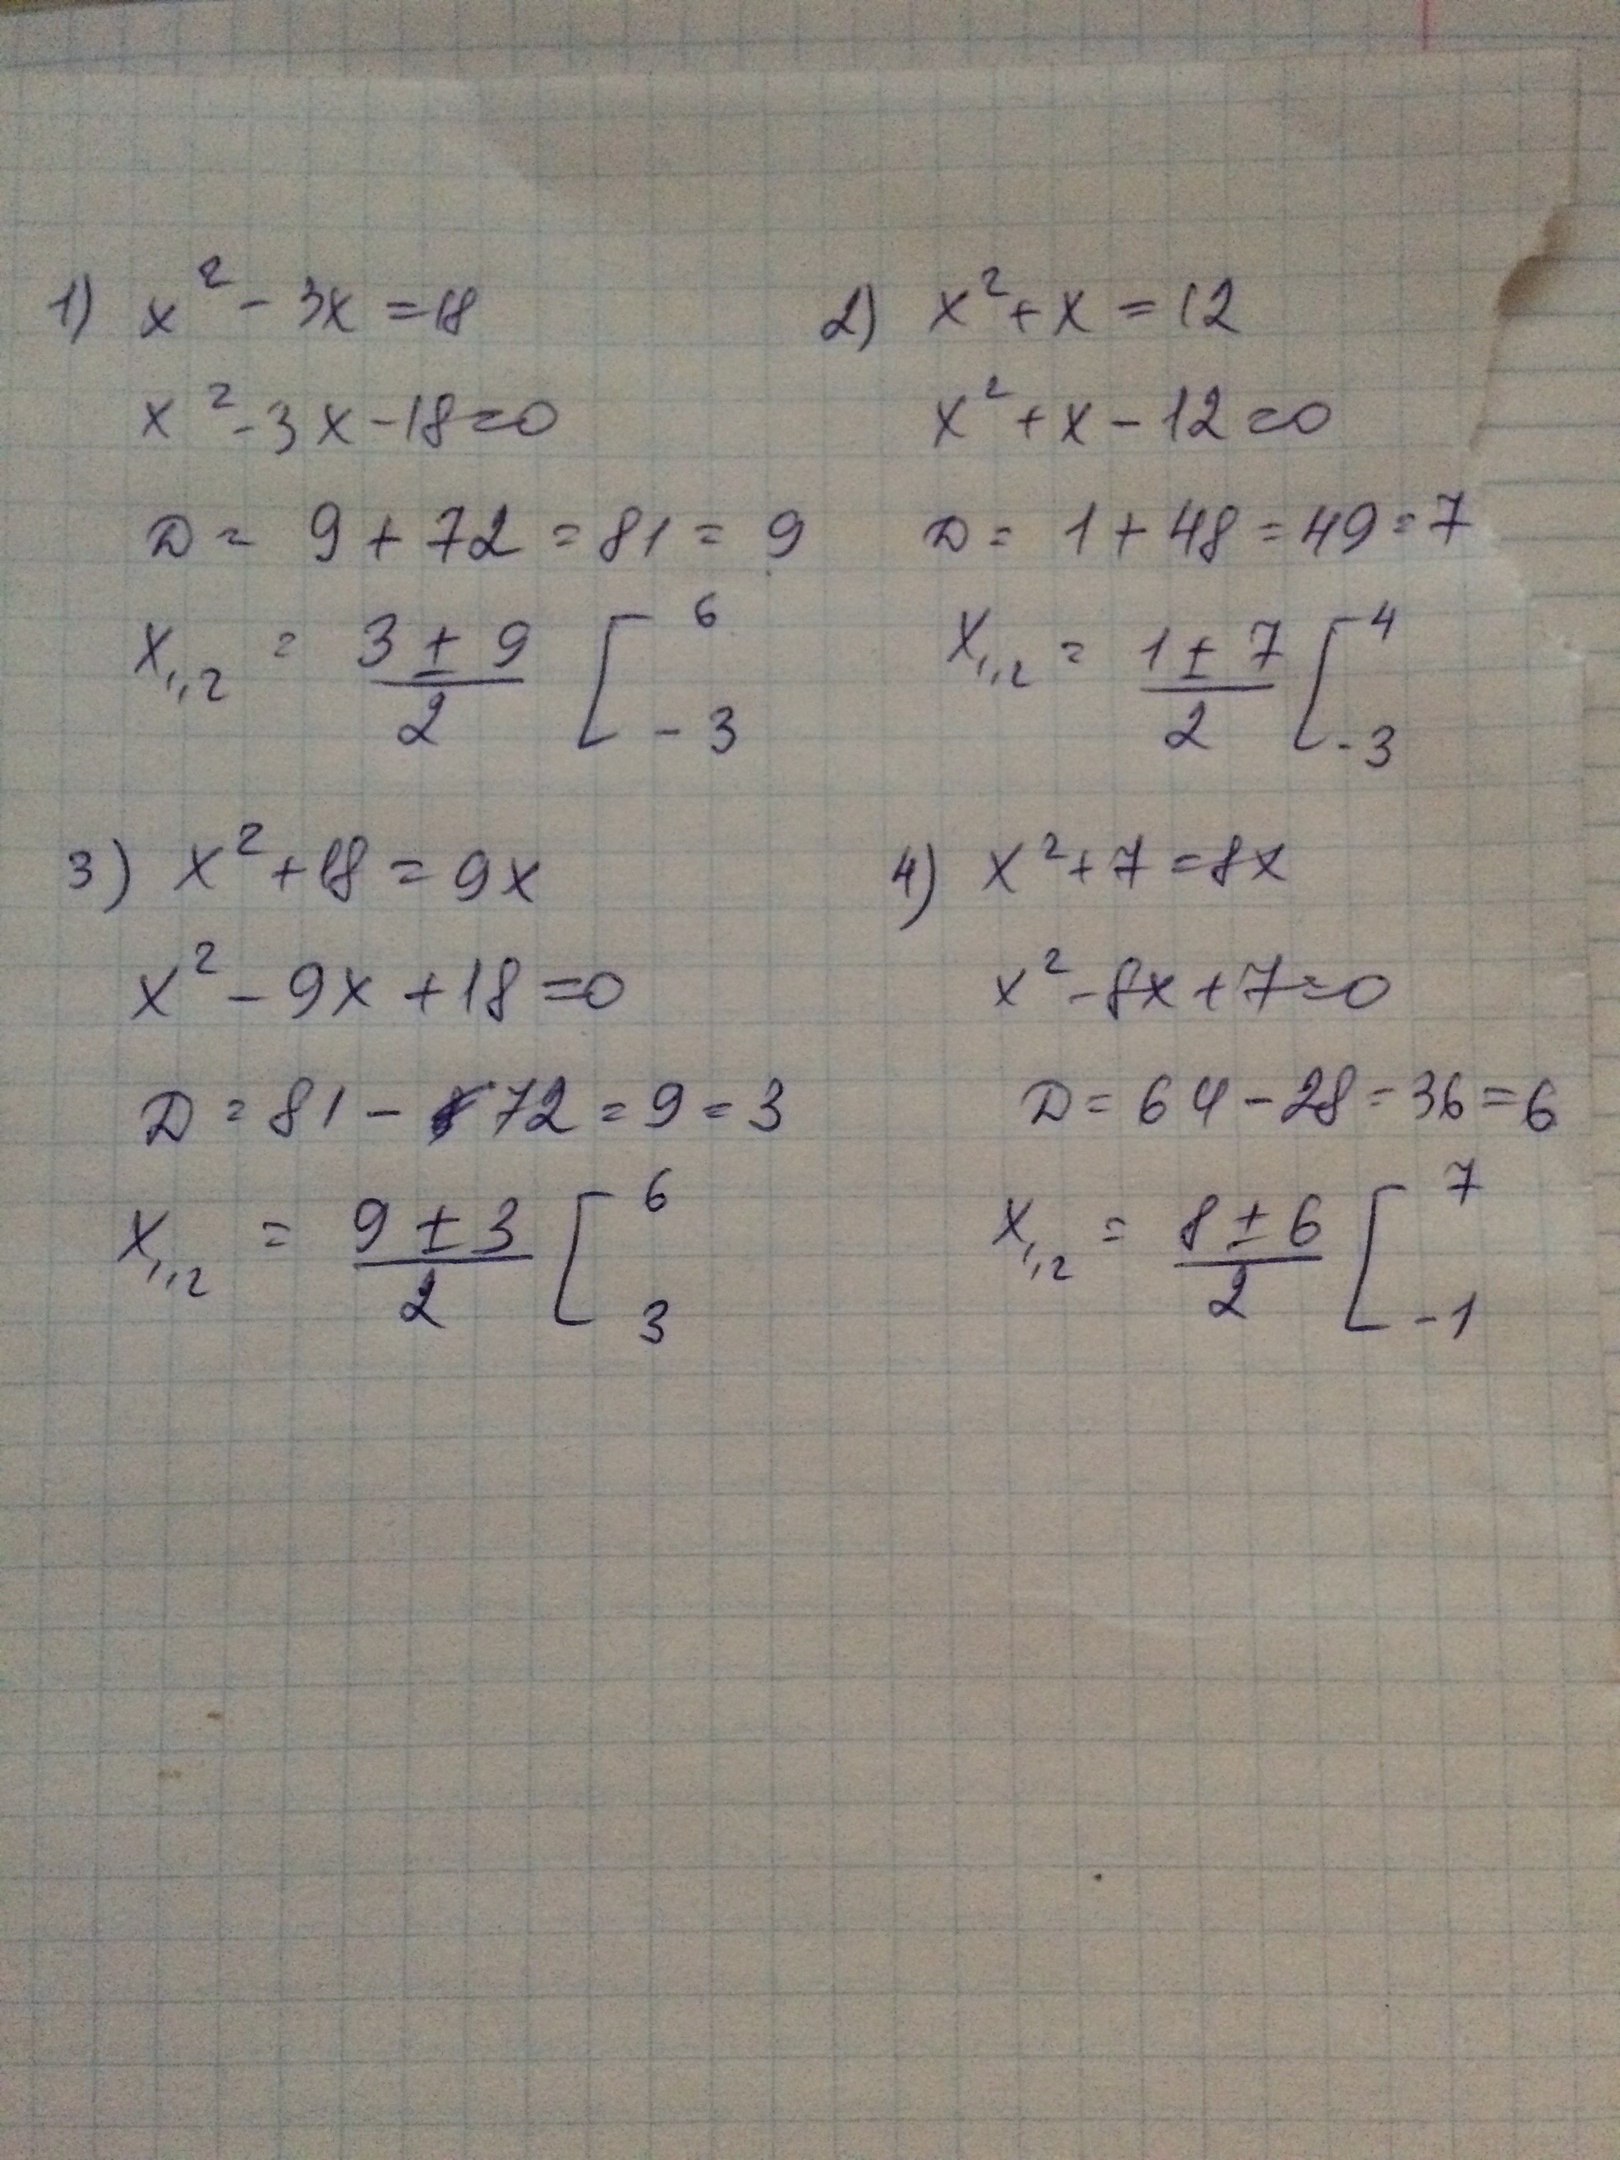 1) x² - 3x = 18
x² - 3x - 18 = 0
D = 9 + 72 = 81 = 9
x₁,₂ = (3 ± 9)/2 [ 6 -3
2) x² + x = 12
x² + x - 12 = 0
D = 1 + 48 = 49 = 7
x₁,₂ = (1 ± 7)/2 [ 4 -3
3) x² + 18 = 9x
x² - 9x + 18 = 0
D = 81 - 72 = 9 = 3
x₁,₂ = (9 ± 3)/2 [ 6 3
4) x² + 7 = 8x
x² - 8x + 7 = 0
D = 64 - 28 = 36 = 6
x₁,₂ = (8 ± 6)/2 [ 7 -1